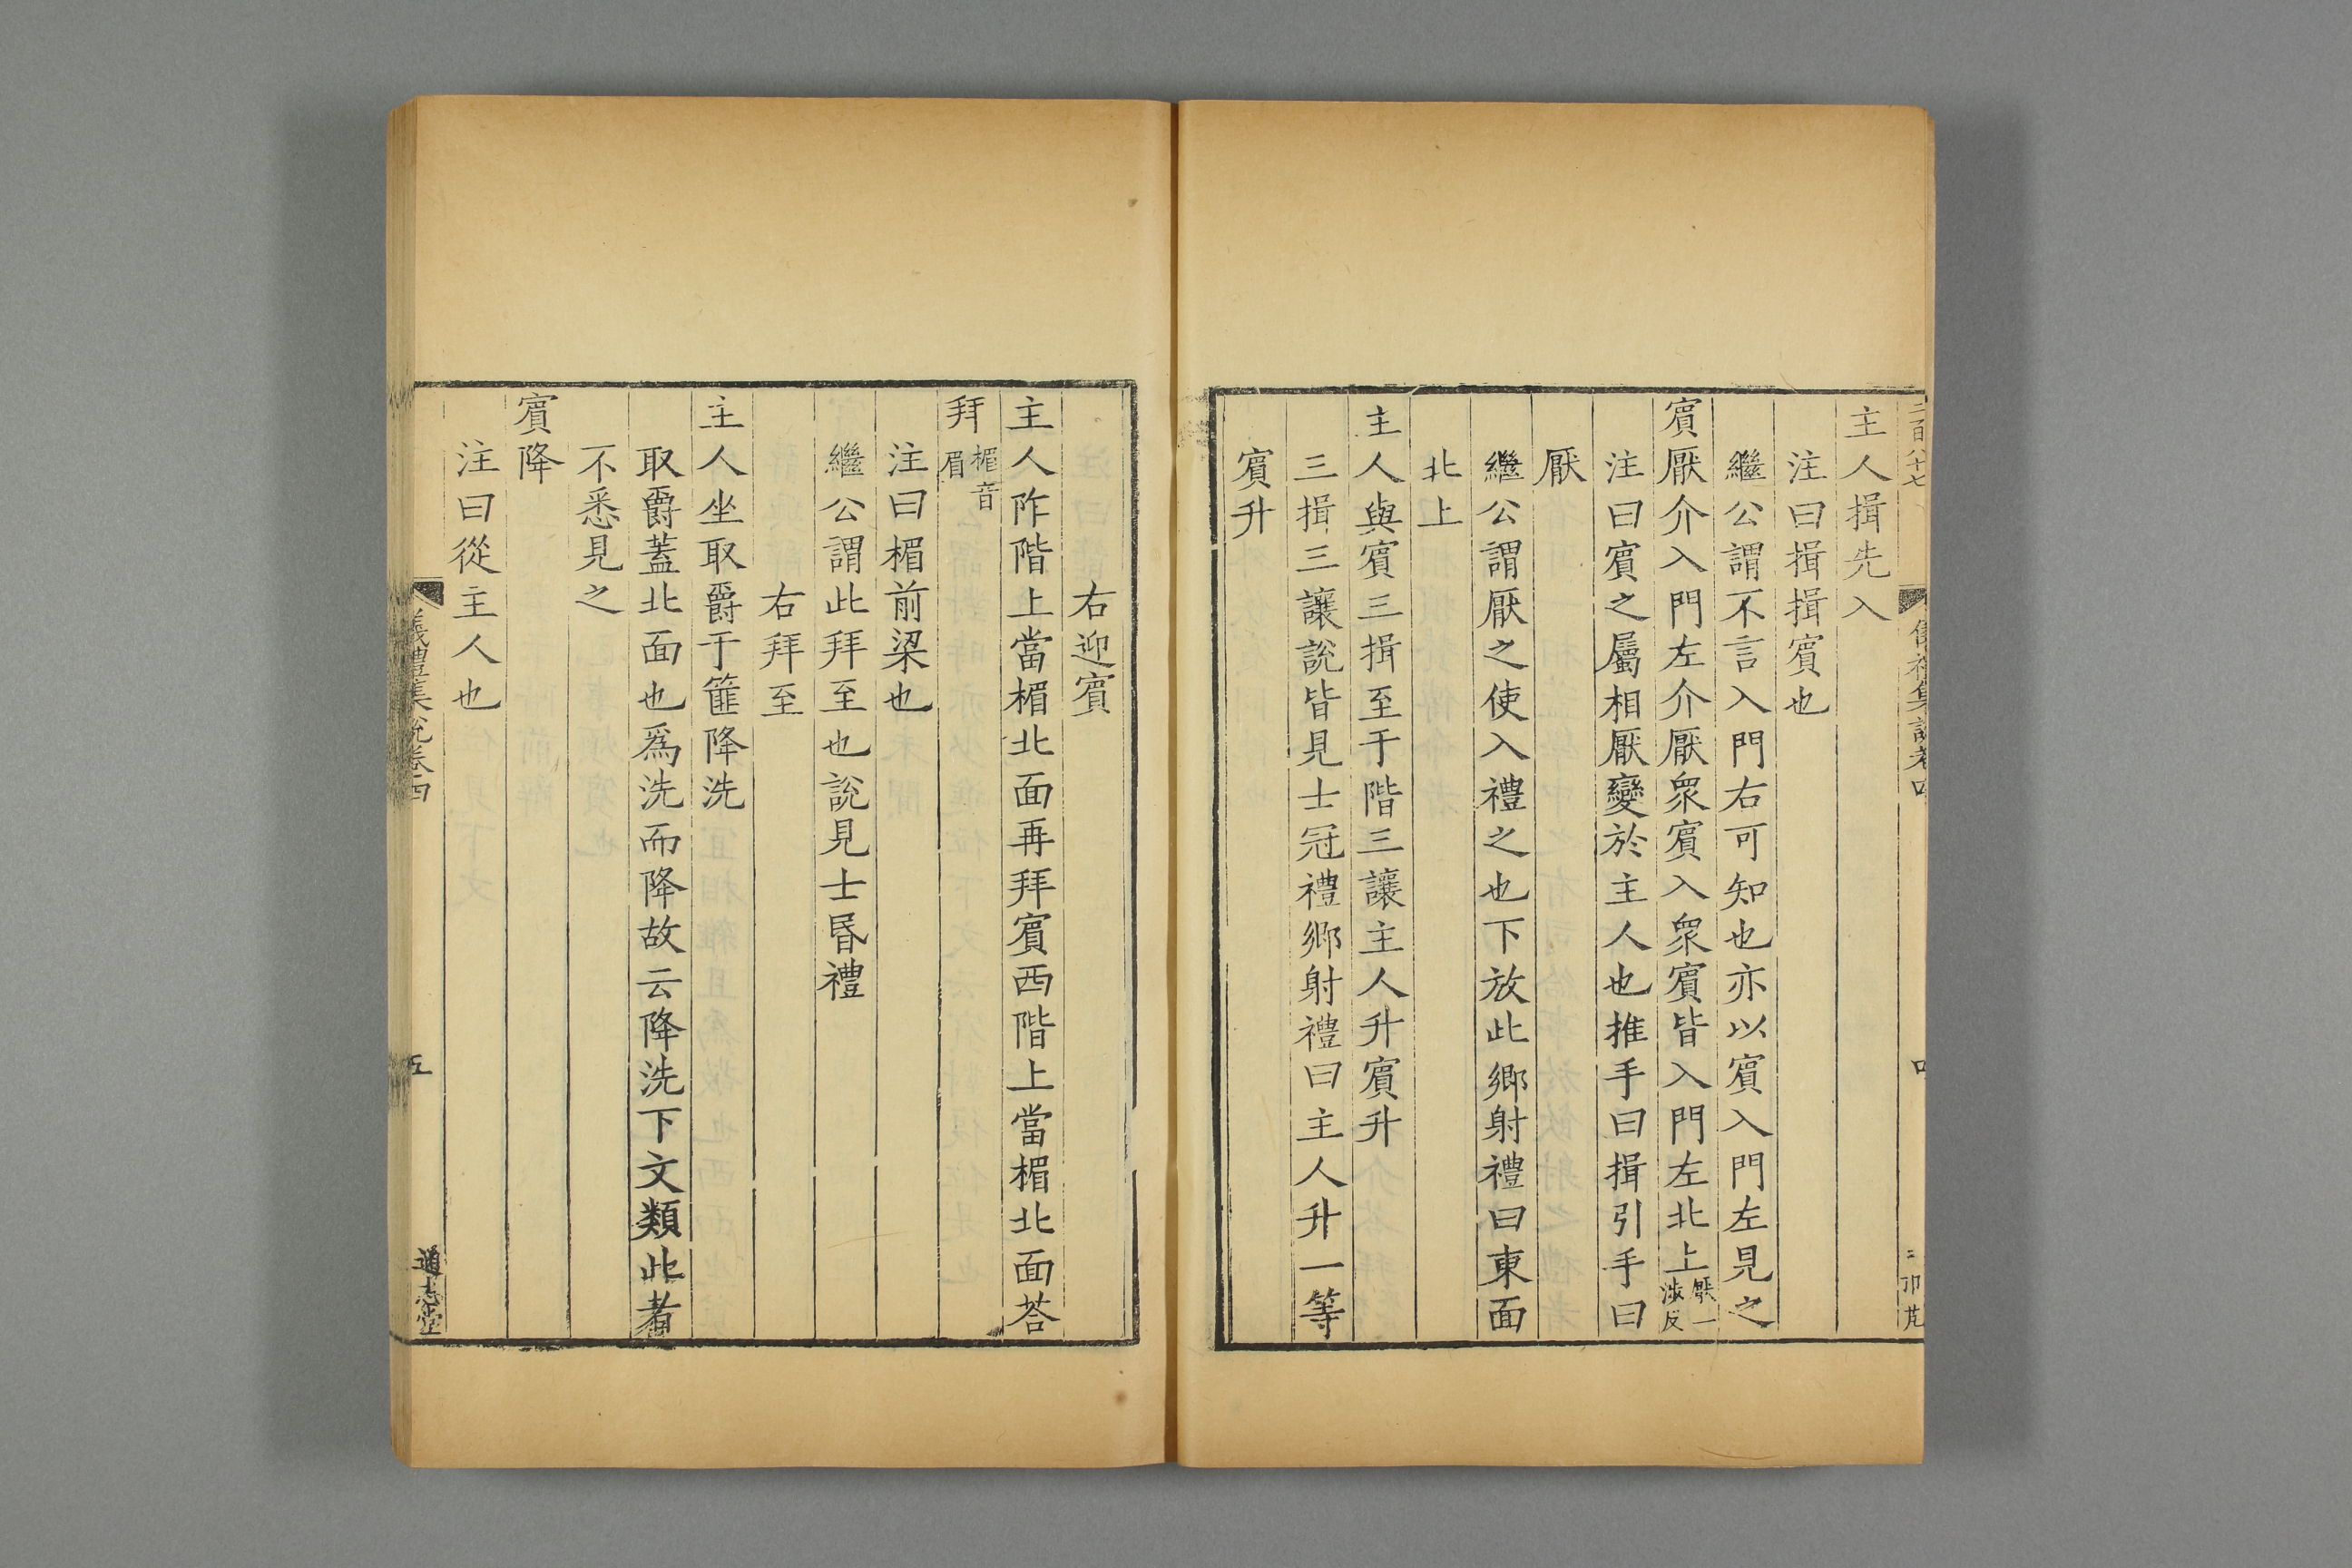 二百八十七
主人揖先入
注曰揖揖賔也
繼公謂不言入門右可知也亦以賔入門左見之
賔厭介入門左介厭衆賔入衆賔皆入門左北上厭一涉反
注曰賔之屬相厭變於主人也推手曰揖引手曰
厭
繼公謂厭之使入禮之也下放此鄉射禮曰東面
北上
主人與賔三揖至于階三讓主人升賔升
三揖三讓說皆見士冠禮鄉射禮曰主人升一等
賔升
右迎賔
主人阼階上當楣北面再拜賔西階上當楣北面荅
拜楣音眉
注曰楣前梁也
繼公謂此拜至也說見士昏禮
右拜至
主人坐取爵于篚降洗
取爵蓋北面也爲洗而降故云降洗下文類此者
不悉見之
賔降
注曰從主人也
儀禮集說卷四
五
通志堂